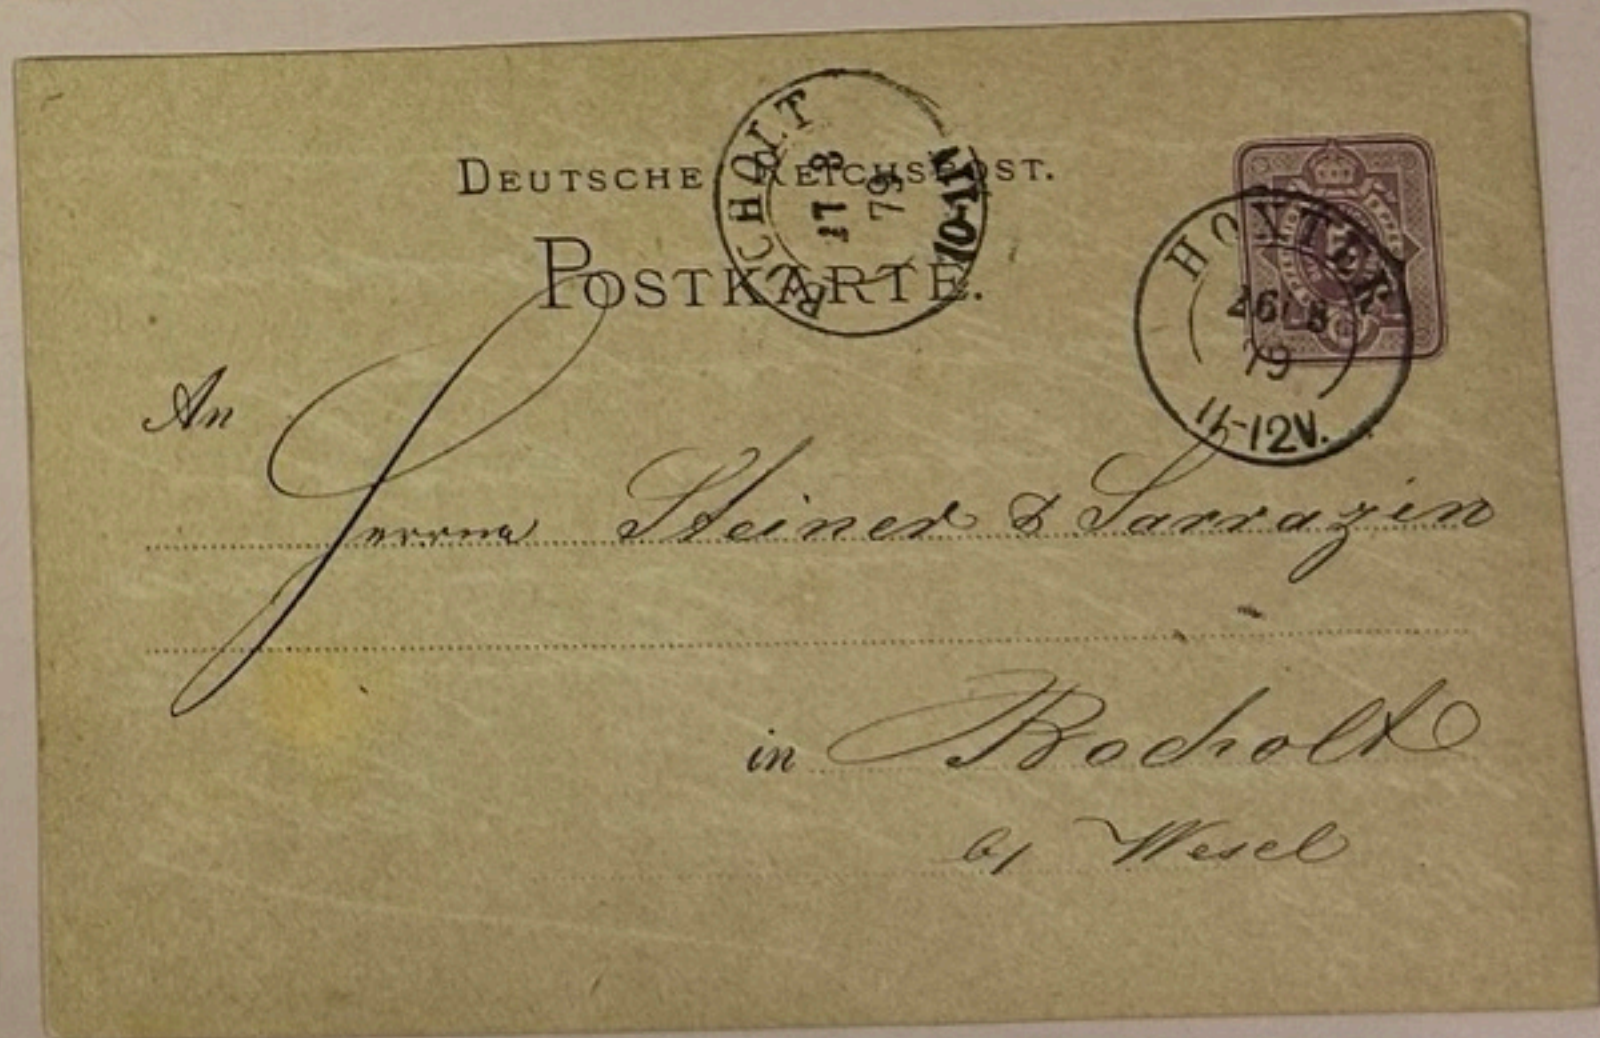 DEUTSCHE REICHSPOST.
POSTKARTE.
BOCHOLT
27 8
79
10-11N
HOXTER
26 8
79
11-12V.
An
Herrn Steiner & Sarrazin
in Bocholt
b/ Wesel